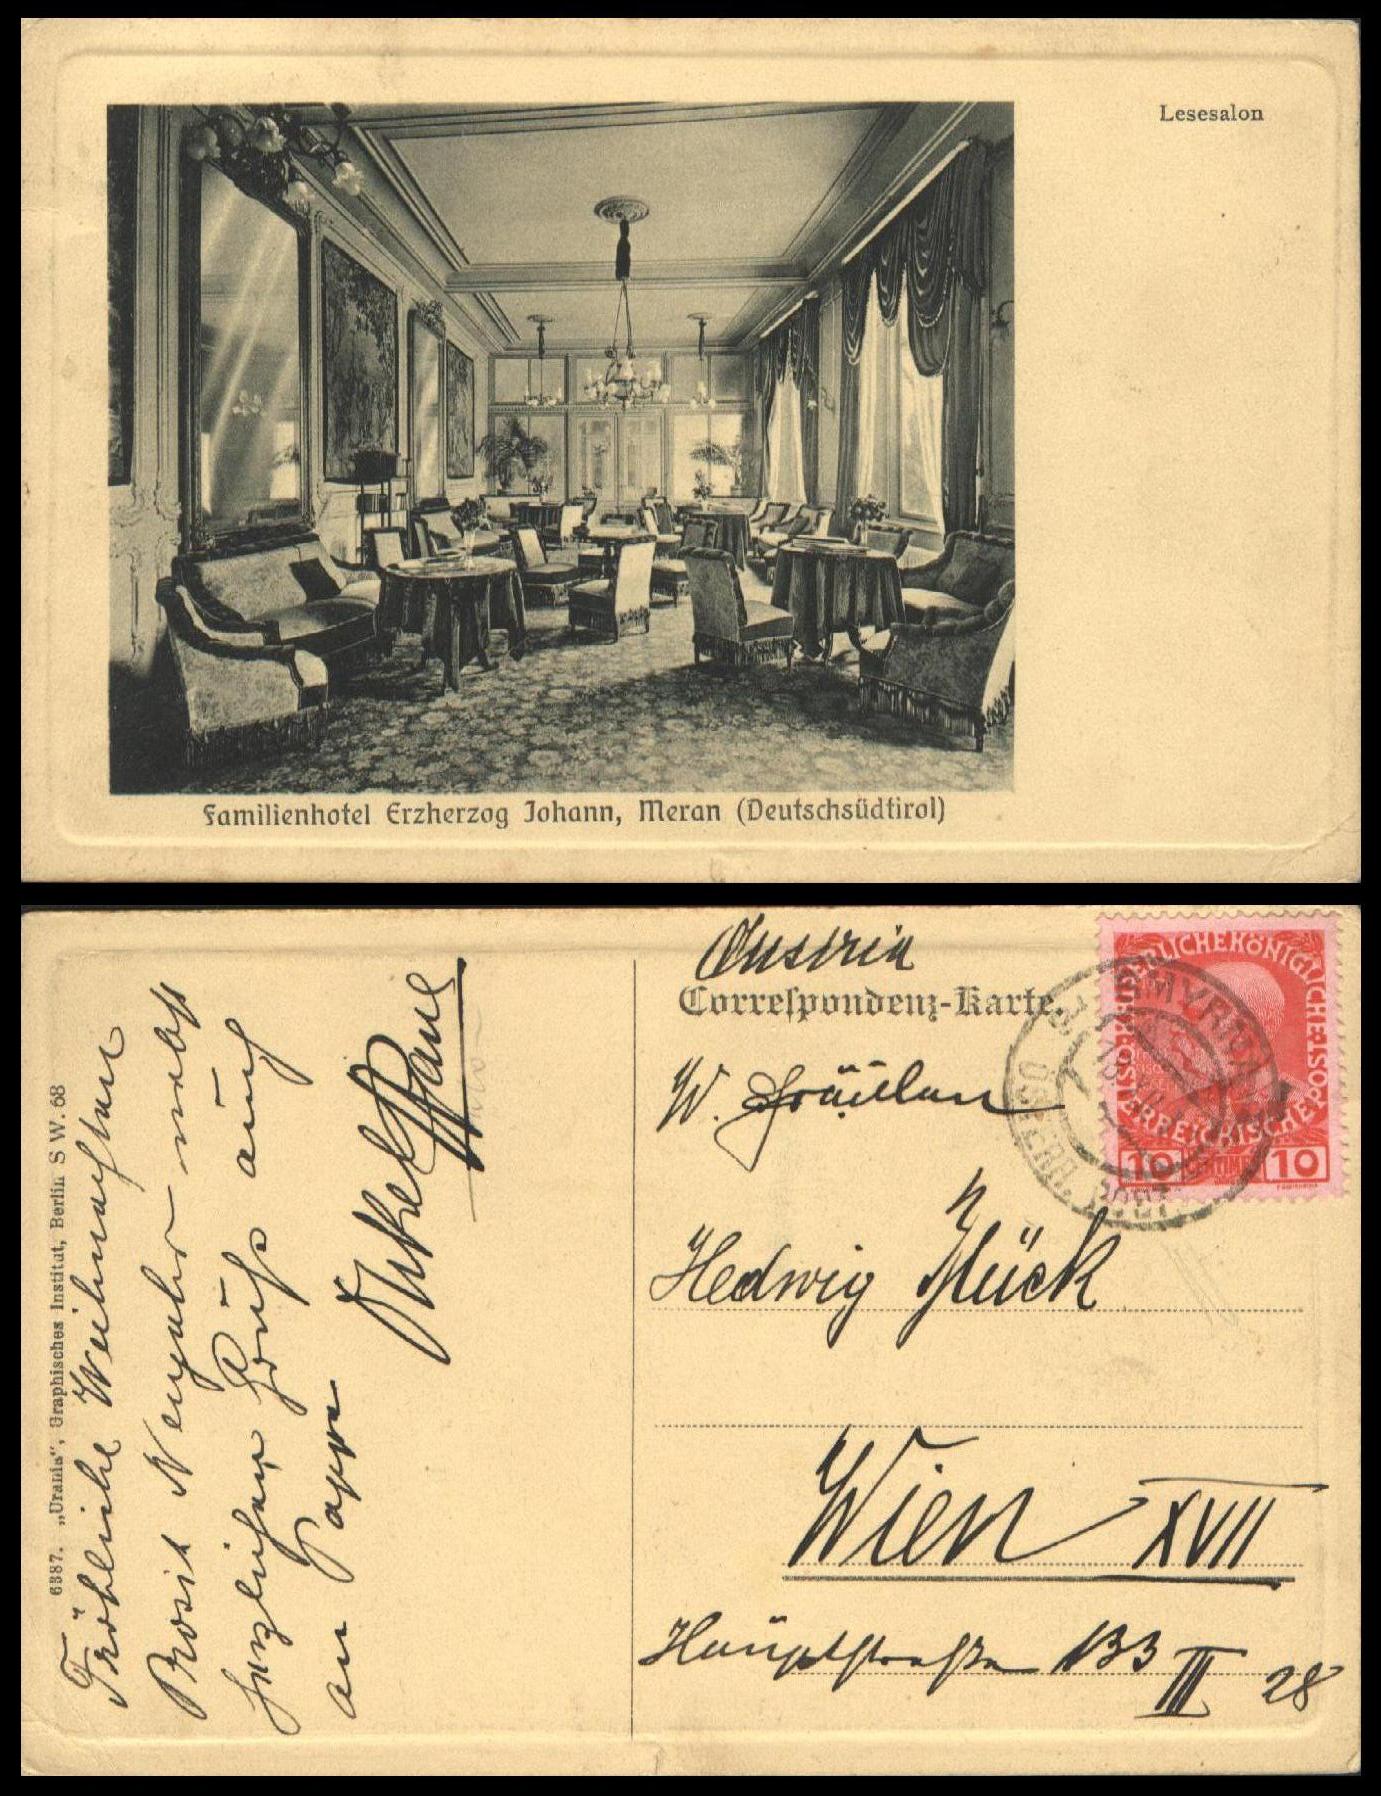 Lesesalon
Familienhotel Erzherzog Johann, Meran (Deutschsüdtirol)
Austria
Correspondenz-Karte.
W. Fräulein
Hedwig Glück
Wien XVII
Hauptstraße 133 III 28
KAISERLICHEKÖNIGLICHE
ÖSTERREICHISCHE POST
10 10
SMYRNA
ÖSTERR. POST
6387. „Urania", Graphisches Institut, Berlin S W. 68
Fröhliche Weihnachten
Prosit Neujahr nebst
herzlichen Gruß auch
an Papa
Onkel Paul